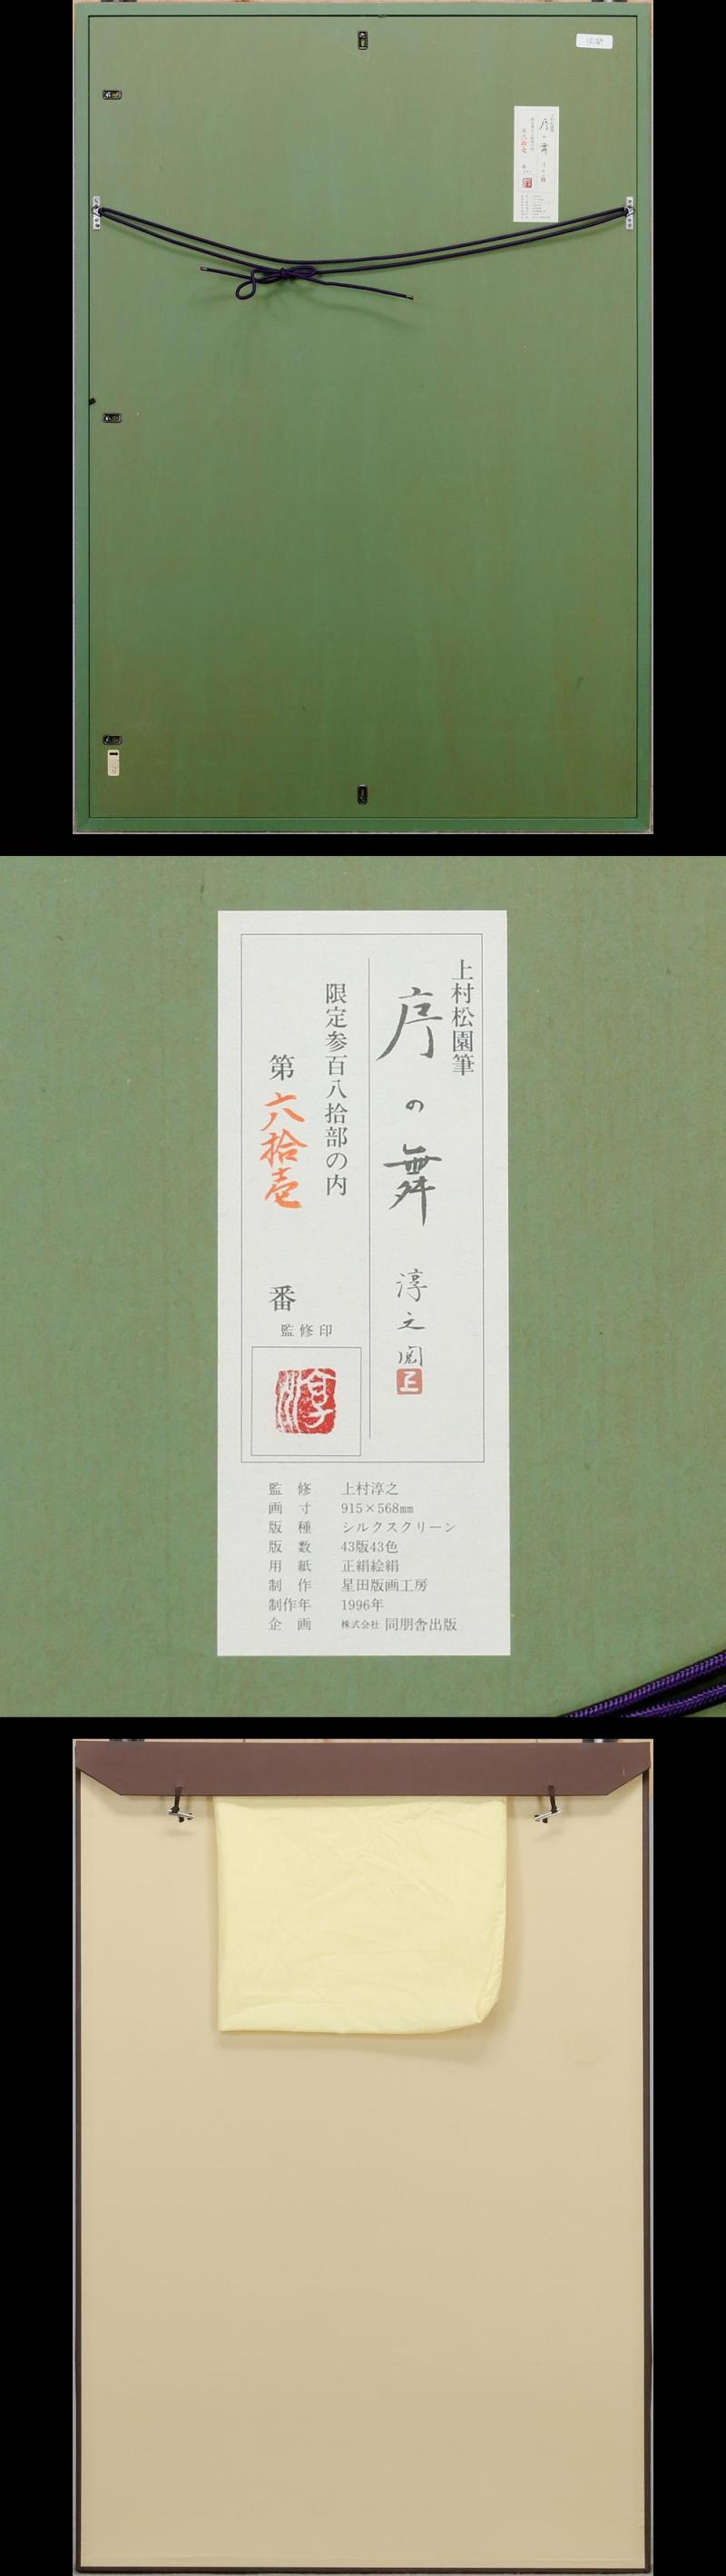 上村松園筆
序の舞
淳之閲
限定参百八拾部の内
第六拾壱番
監修印
淳
監　修　上村淳之
画　寸　915×568㎜
版　種　シルクスクリーン
版　数　43版43色
用　紙　正絹絵絹
制　作　星田版画工房
制作年　1996年
企　画　株式会社 同朋舎出版